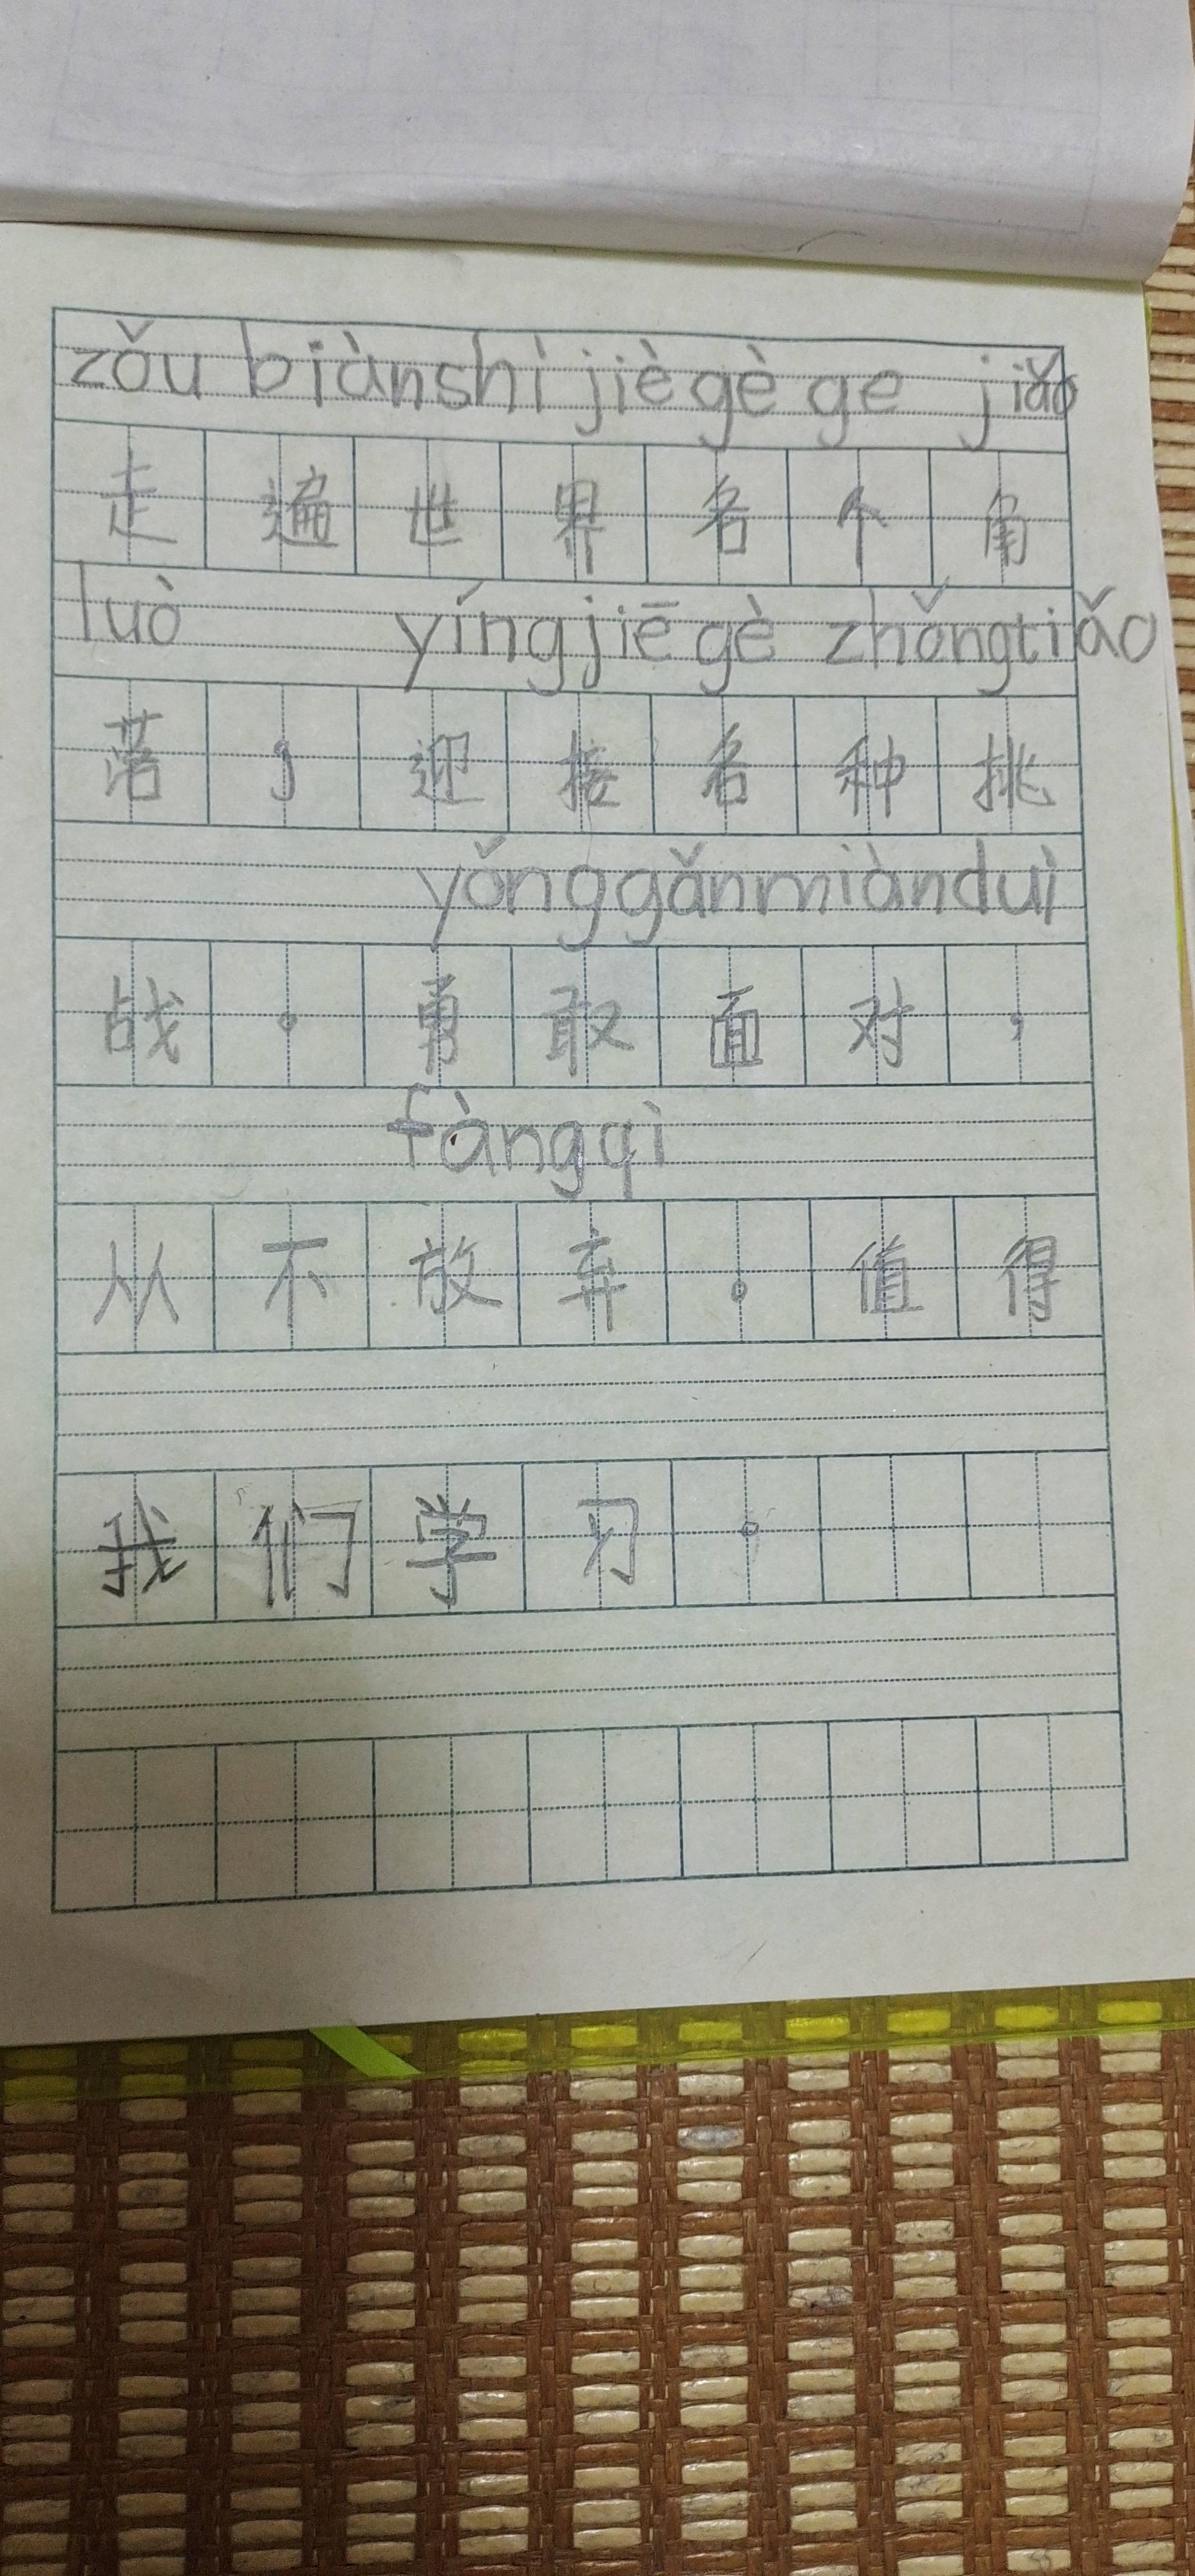 zǒu biàn shì jiè gè ge jiǎo
走遍世界名个角
luò yíng jiē gè zhǒng tiǎo
落，迎接名种挑
yǒng gǎn miàn duì
战。勇敢面对，
fàng qì
从不放弃。值得
我们学习。